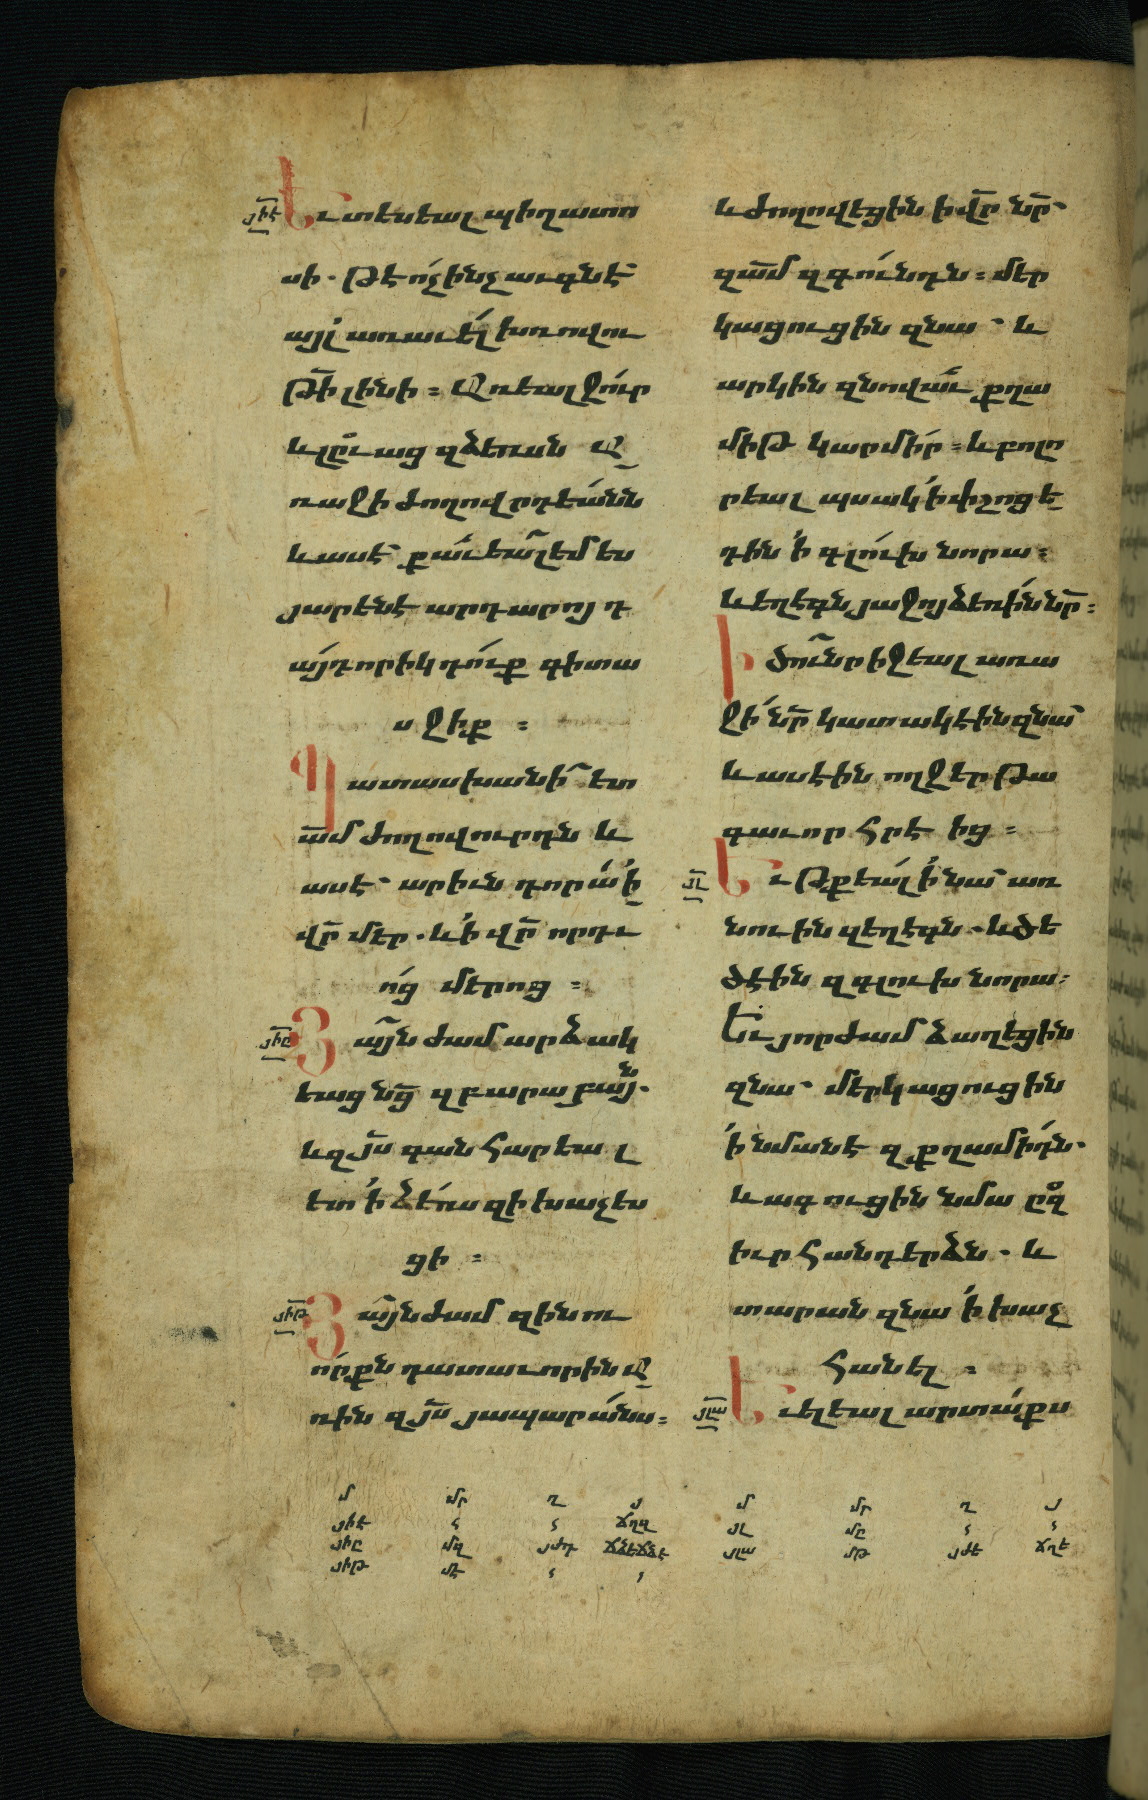 յիէ
Եւ տեսեալ պիղատո
սի. թէ ո՛չինչ աւգնէ՝
այլ առաւե՛լ խռովու
թի̅ լինի։ Առեալ ջո՛ւր
և լըւաց զձեռսն ա
ռաջի ժողովրդեա՛նն
և ասէ՝ քաւեա՜լ եմ ես
յարենէ արդարոյ դ
այ՛դորիկ դո՛ւք գիտա
սջիք ։
Պատասխանի՜ ետ
ա̅մ ժողովուրդն և
ասէ՝ արիւն դորա՛ ՛ի
վր̅ մեր. և ՛ի վր̅ որդւ
ո՛ց մերոց ։
յիը
Յայ՜նժամ արձակ
եաց նց̅ զբարաբայ՜ն.
և զյս̅ գան հարեալ
ետ ՛ի ձե՛ռս զի խաչես
ցի ։
յիթ
Յայ՜նժամ զինու
ո՛րքն դատաւորին ա
ռին զյս̅ յապարա՛նս։
և ժողովեցին ի վր̅ նր̅՝
զա̅մ զգո՛ւնդն։ մեր
կացուցին զնա՝ և
արկին զնովա՜ւ քղա
միթ կարմի՛ր։ և բոլո
րեալ պսակ ՛ի փշոց ե
դին ՛ի գլո՛ւխ նորա։
և եղէգն յաջոյ ձեռի՛ն նր̅։
Ի ծո՜ւնր իջեալ առա
ջի՛ նր̅ կատակէին զնա՝
և ասէին ողջեր թա
գաւոր հրէից ։
յլ
Եւ թքեա՛լ ՛ի նա՝ առ
նուին զեղէգն. և ծե
ծէին զգլուխ նորա։
Եւ յորժամ ձաղեցին
զնա՝ մերկացուցին
՛ի նմանէ զքղամի՛դն.
և ագուցին նմա ըզ
իւր հանդերձն. և
տարան զնա ՛ի խաչ
հանել ։
յլա
Եւ ելեալ արտա՛քս
մ մր ղ յ
յիէ ՟ ՟ ճղզ
յիը մզ յժդ ճձեճձէ
յիթ մէ ՟ ՟
մ մր ղ յ
յլ մը ՟ ՟
յլա մթ յժե ճղէ